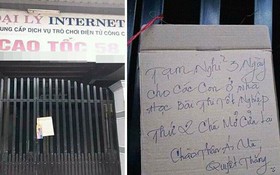 ĐẠI LÝ INTERNET
CUNG CẤP DỊCH VỤ TRÒ CHƠI ĐIỆN TỬ CÔNG C
CAO TỐC 58
Tạm Nghỉ 3 Ngày
cho Các Con ở nhà
Học Bài Thi Tốt Nghiệp
Thứ 2 Chú Mở Cửa Lại
Chào Thân Ái
Quyết Thắng